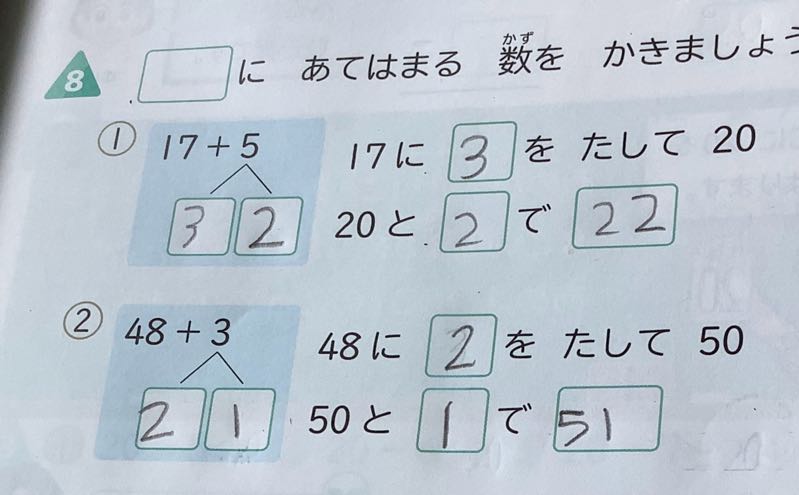 8 □に あてはまる 数を かきましょう
かず
① 17+5 17に 3 を たして 20
3 2 20と 2 で 22
② 48+3 48に 2 を たして 50
2 1 50と 1 で 51